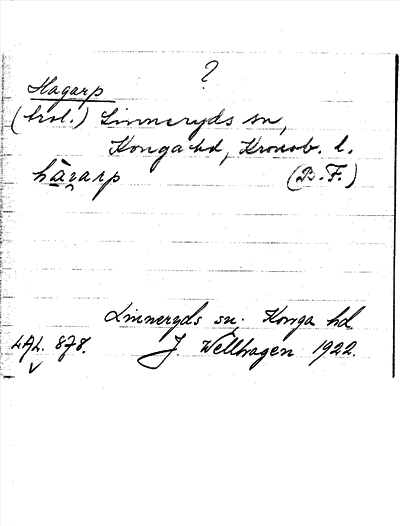 ?
Hagarp
(trol.) Linneryds sn,
Konga hd, Kronob. l.
hàgarp (B.F.)
Linneryds sn. Konga hd
LAL. 878. J. Wellhagen 1922.